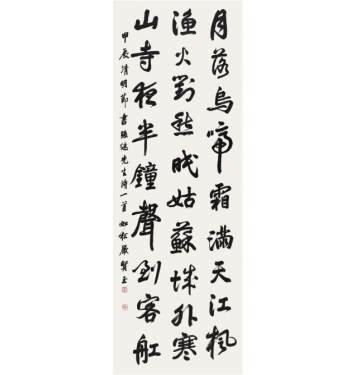 月落烏啼霜滿天江楓
漁火對愁眠姑蘇城外寒
山寺夜半鐘聲到客船
甲辰清明節書張繼先生詩一首